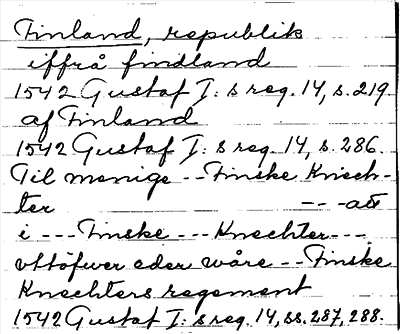 Finland, republik
iffrå findland
1542 Gustaf I:s reg. 14, s. 219.
af Finland
1542 Gustaf I:s reg. 14, s. 286.
Til menige -- Finske Knech-
ter --- att
i --- Finske --- Knechter ---
vttöfwer eder wåre -- Finske
Knechters regement
1542 Gustaf I:s reg. 14, ss. 287, 288.